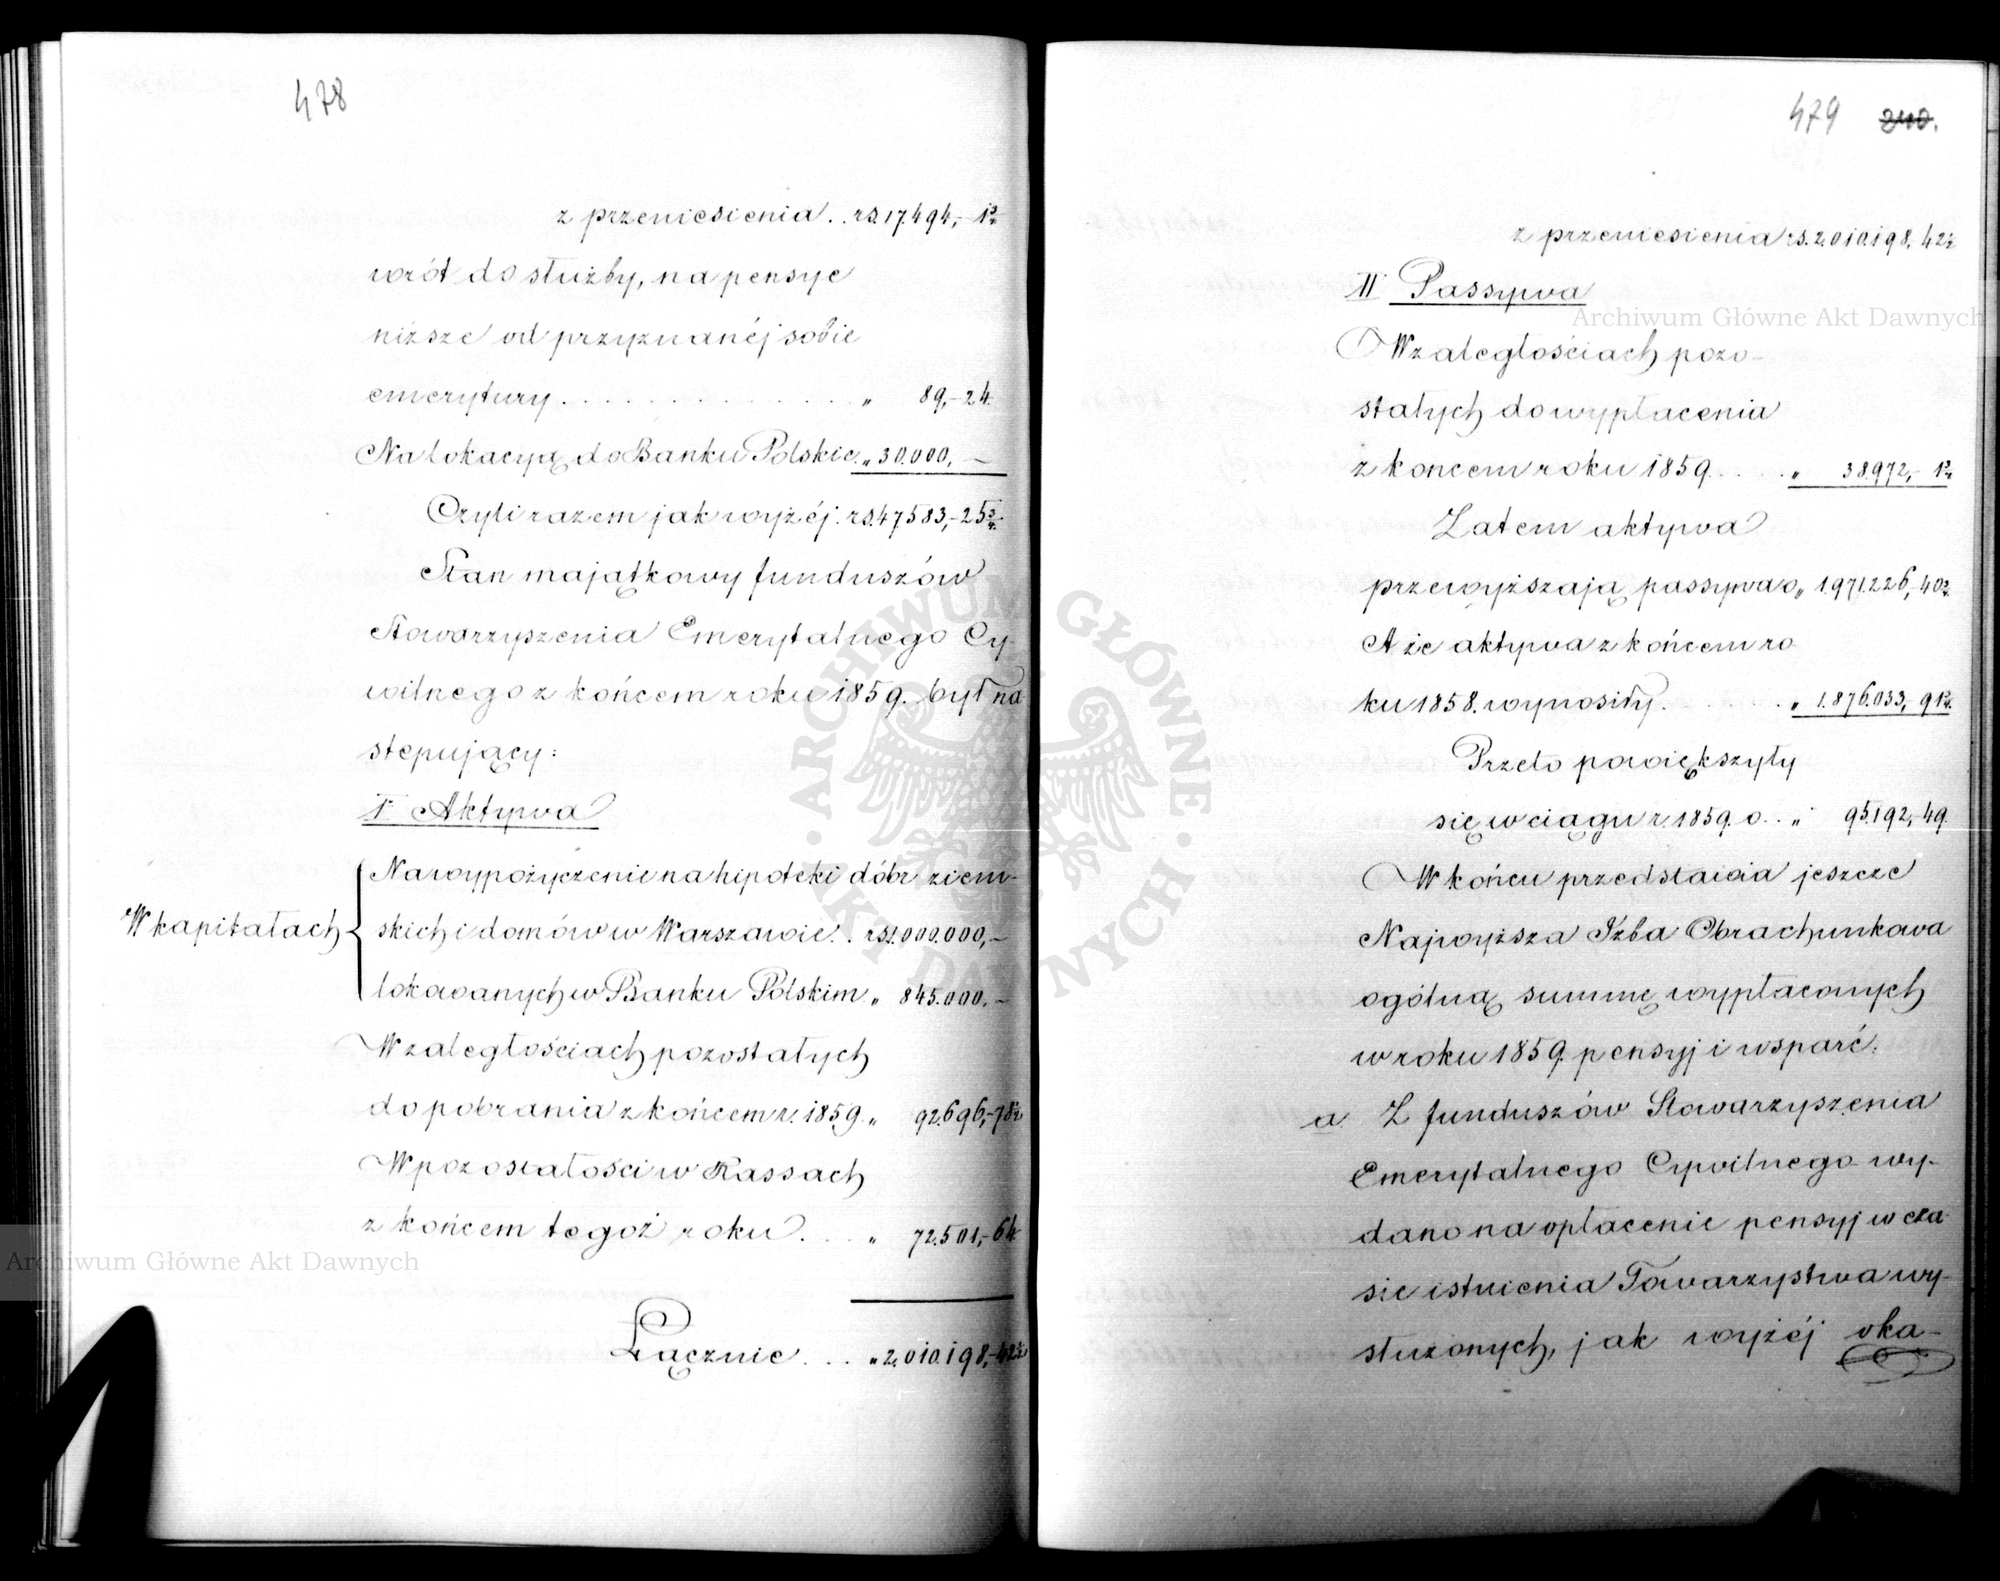 478
z przeniesienia . . rs. 17.494,- 1¾
wrót do służby, na pensye
niższe od przyznanéj sobie
emerytury . . . . . . . . . . . . „ 89,-24.
Na lokacyą do Banku Polskie. „ 30.000,-
Czyli razem jak wyżéj . rs. 47583,-25¾
Stan majątkowy funduszów
Stowarzyszenia Emerytalnego Cy-
wilnego z końcem roku 1859. był na
stępujący:
I° Aktywa
W kapitałach
Na wypożyczenie na hipoteki dóbr ziem-
skich i domów w Warszawie . . rs. 1.000.000,-
lokowanych w Banku Polskim „ 845.000,-
W zaległościach pozostałych
do pobrania z końcem r. 1859 „ 92.696,-78½
W pozostałości w Kassach
z końcem tegoż roku . . . „ 72.501,-64
Łącznie . . . „ 2.010.198,-42½
479 240.
z przeniesienia rs. 2.010.198, 42½
II° Passywa
W zaległościach pozo-
stałych do wypłacenia
z koncem roku 1859 . . . . „ 38.972,- 1¾
Zatem aktywa
przewyższają passywa o „ 1.971.226,-40¾
A że aktywa z końcem ro
ku 1858. wynosiły . . . . . . „ 1.876.033,-91¾
Przeto powiększyły
się w ciągu r. 1859. o . . „ 95.192,-49.
W końcu przedstawia jeszcze
Najwyższa Izba Obrachunkowa
ogólną summę wypłaconych
w roku 1859. pensyj i wsparć:
a. Z funduszów Stowarzyszenia
Emerytalnego Cywilnego wy-
dano na opłacenie pensyj w cza-
sie istnienia Towarzystwa wy-
służonych, jak wyżéj oka-
Archiwum Główne Akt Dawnych
Archiwum Główne Akt Dawnych
ARCHIWUM GŁÓWNE · AKT DAWNYCH ·